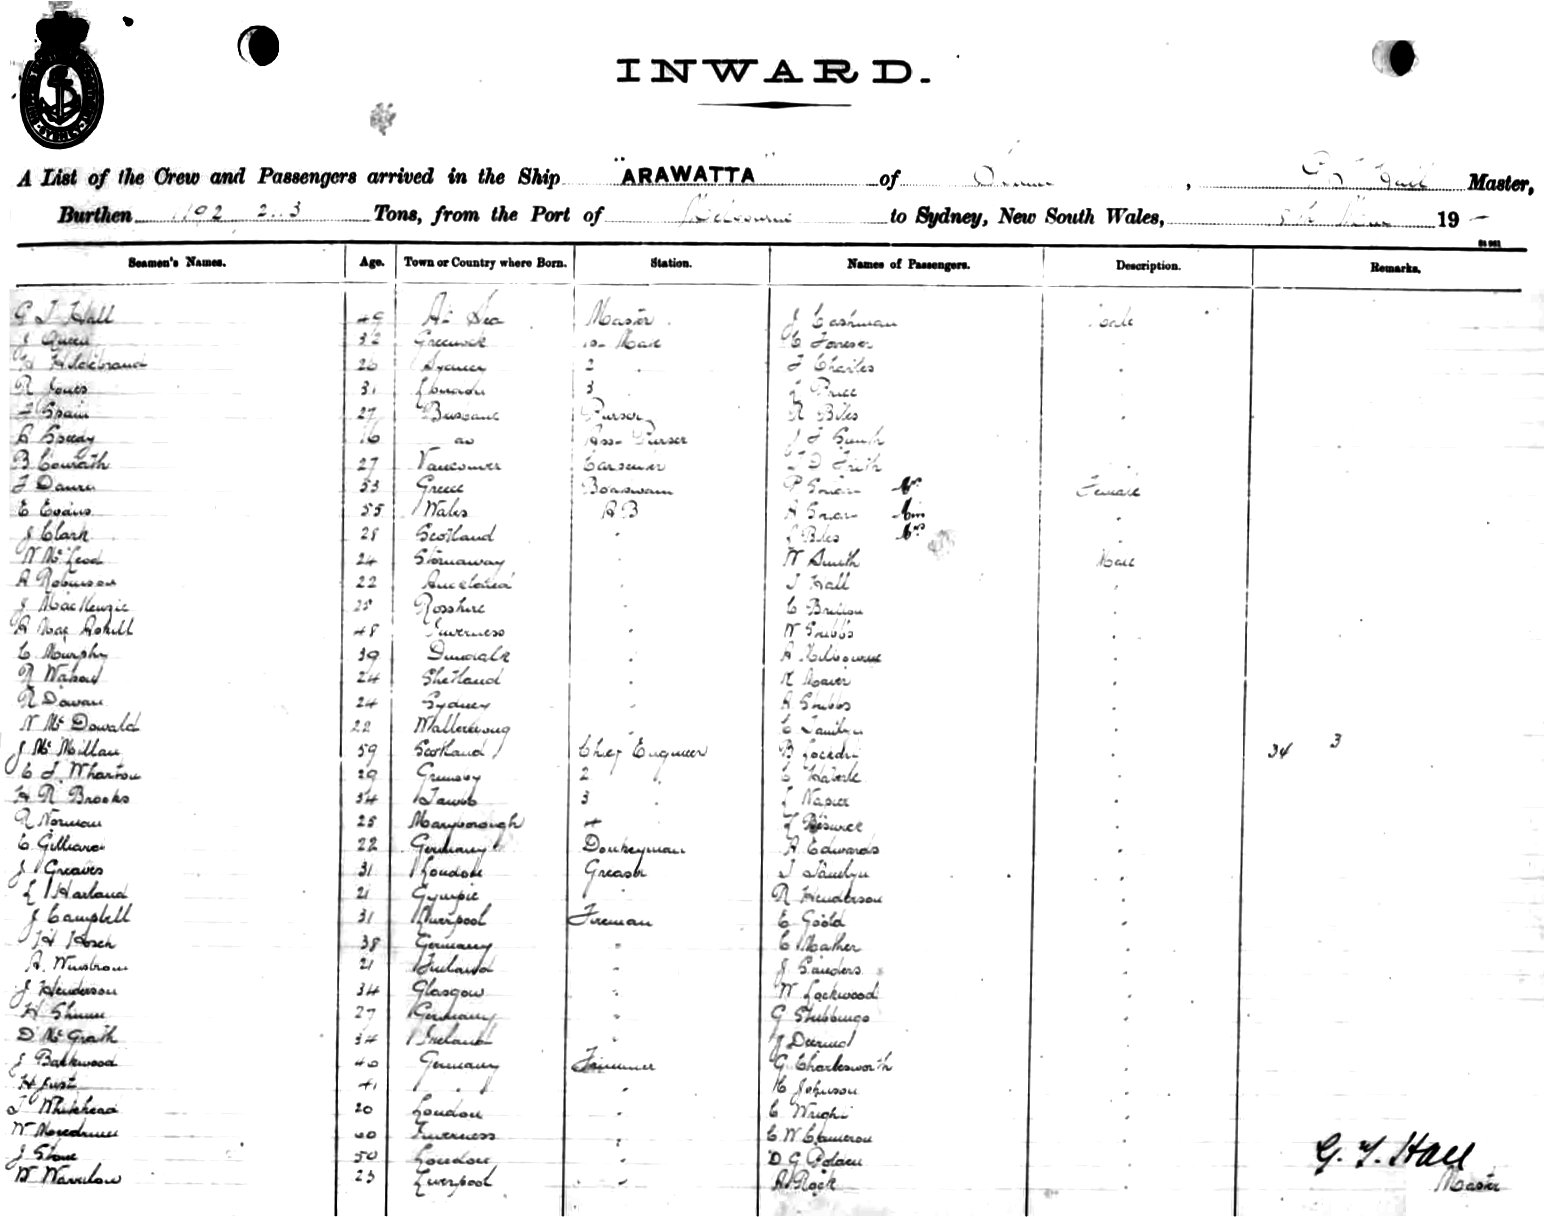 INWARD.
A List of the Crew and Passengers arrived in the Ship "ARAWATTA" of Hall Master,
Burthen 1192 Tons, from the Port of Melbourne to Sydney, New South Wales, 19
Seamen's Names. Age. Town or Country where Born. Station. Names of Passengers. Description. Remarks.
G T Hall 49 At Sea Master J Cashman Male
J Queen 32 Greenock 1st Mate C
H Hildebrand 26 Sydney 2 J Charles
R Jones 31 London 3 L Price
J Spain 27 Brisbane Purser R Biles
A Speedy 16 do Ass Purser J J Smith
B Conrath 27 Vancouver Carpenter J D Frith
J 53 Greece Boatswain P Mrs Female
E Evans 55 Wales A B A Miss
J Clark 28 Scotland " L Biles Mrs
N McLeod 24 Stornaway " W Smith Male
A Robinson 22 Auckland " J Hall
J MacKenzie 28 Rosshire " C
A MacAskill 48 Inverness " W Stubbs
C Murphy 39 Dundalk " A Melbourne
R Watson 24 Shetland "
R Dowan 24 Sydney " A Stubbs
N McDonald 22 " C
J McMillan 59 Scotland Chief Engineer B 34 3
C J Wharton 29 Grimsby 2 C
H R Brooks 34 3 L Napier
R Norman 25 Maryborough 4 L Beswick
C 22 Germany Donkeyman A Edwards
J Greaves 31 London Greaser J
L Harland 21 Gympie " R Henderson
J Campbell 31 Liverpool Fireman E Goold
H Hosch 38 Germany " C Mather
A. 21 Finland " J Sanders
J Henderson 34 Glasgow " W Lockwood
H 27 Germany " G Stubbings
D McGrath 34 Ireland " J
J Backwood 40 Germany Trimmer G Charlesworth
H Just 41 " " K Johnson
J Whitehead 20 London " C Wright
W 60 Inverness " C W Cameron
J Stone 50 London " D G Bolden
W 23 Liverpool " A Rock
G. T. Hall
Master